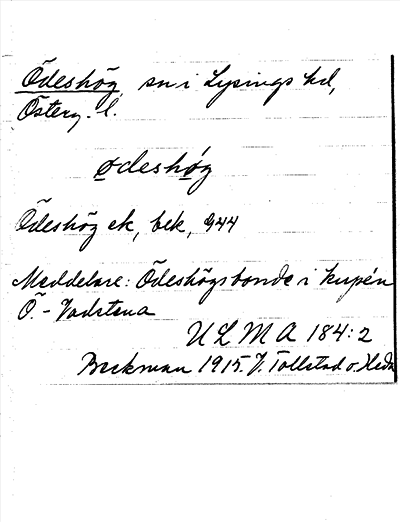 Ödeshög, sn i Lysings hd,
Österg. l.
ødeshög
Ödeshög ek, bek, 944
Meddelare: Ödeshögsbonde i kupén
Ö.- Vadstena
ULMA 184:2
Beckman 1915. V. Tollstad o. Heda